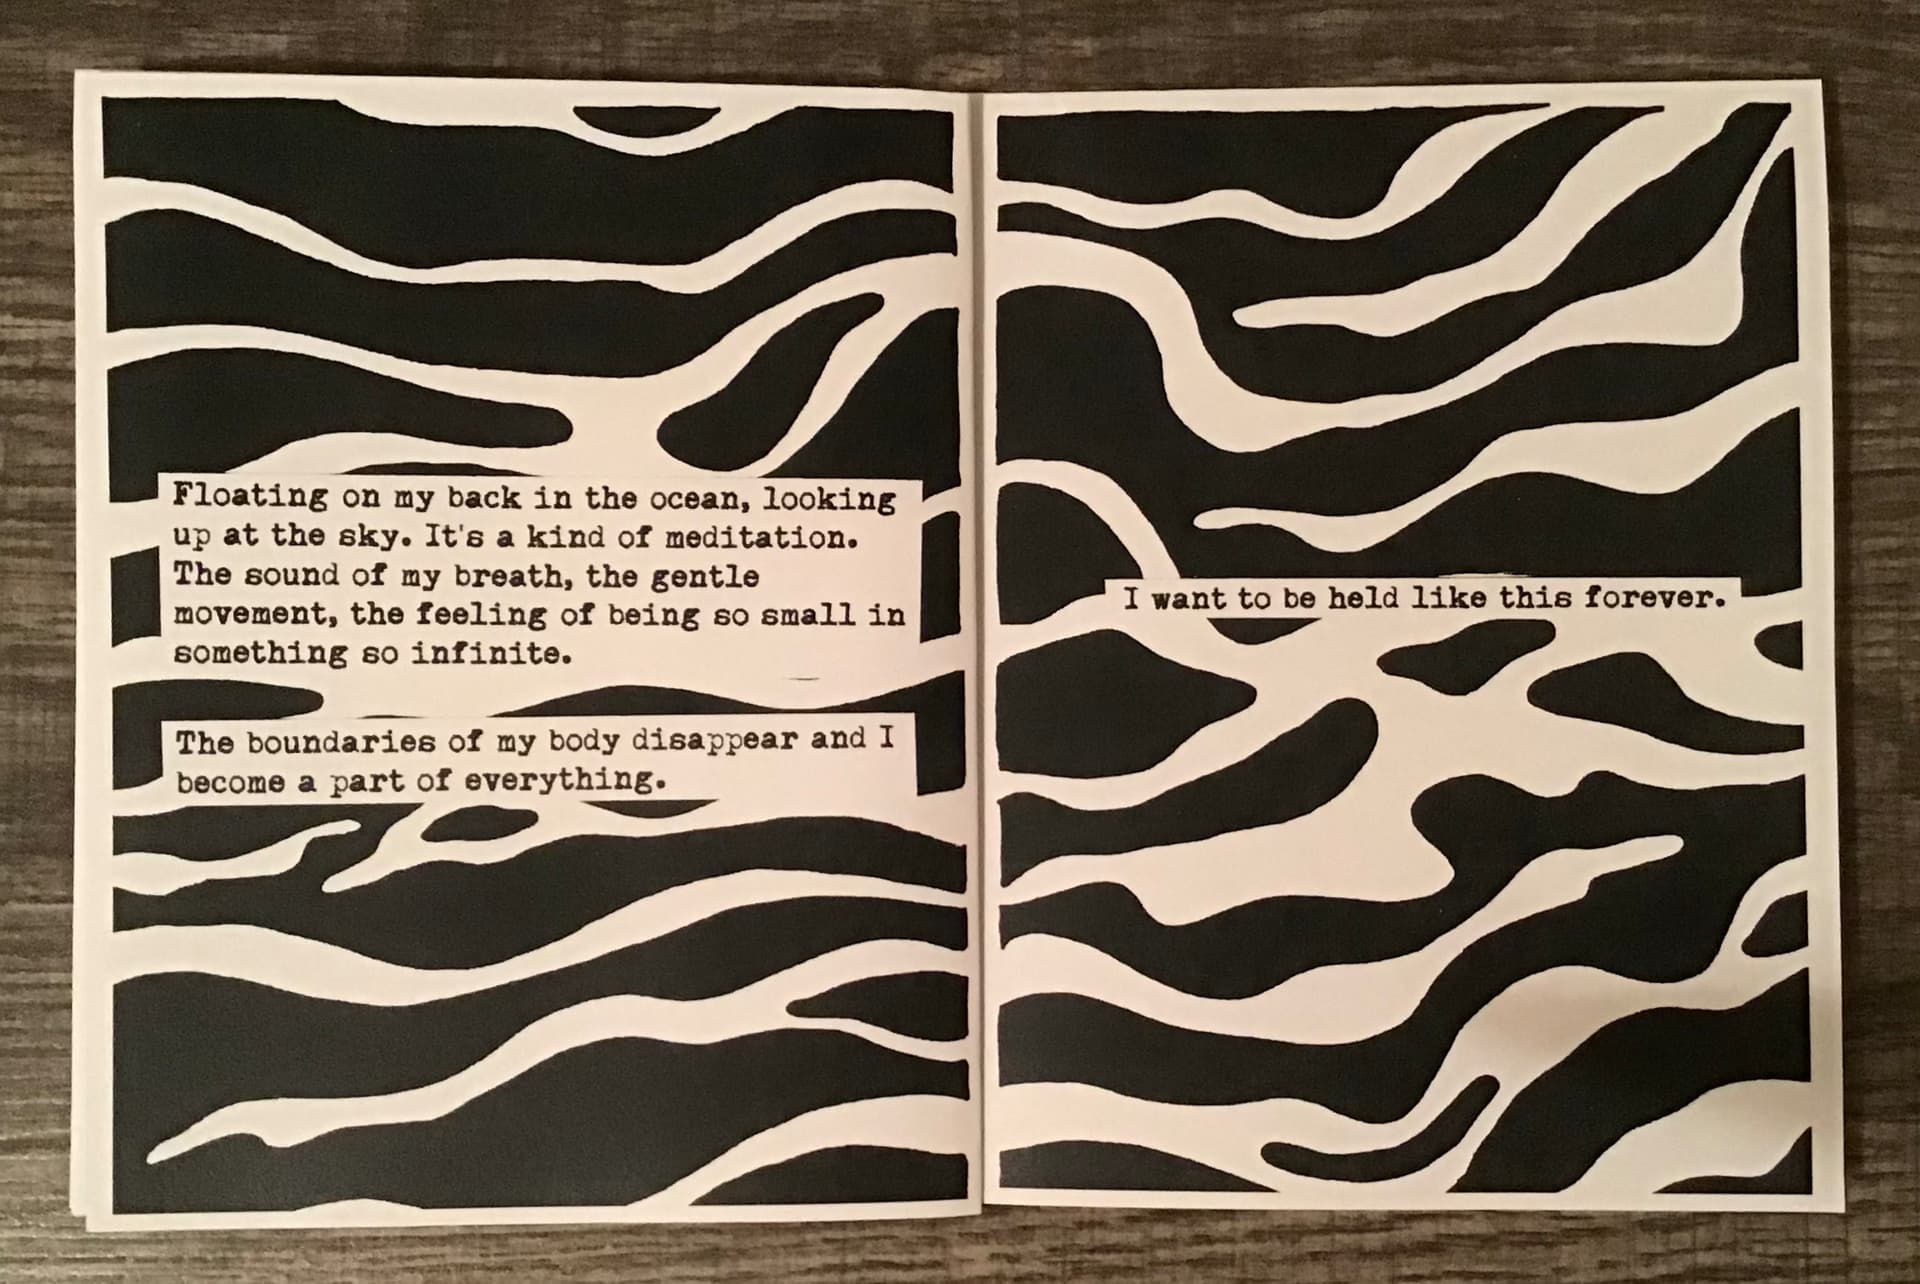 Floating on my back in the ocean, looking
up at the sky. It's a kind of meditation.
The sound of my breath, the gentle
movement, the feeling of being so small in
something so infinite.
The boundaries of my body disappear and I
become a part of everything.
I want to be held like this forever.